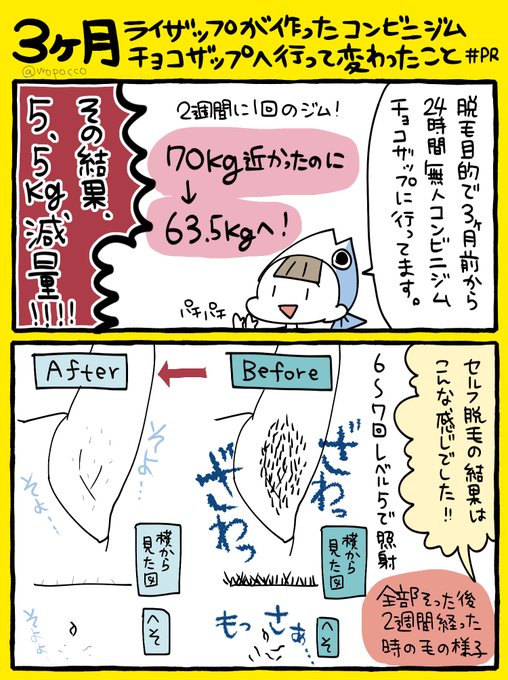 3ヶ月
ライザップが作ったコンビニジム
チョコザップへ行って変わったこと #PR
@wopocco
脱毛目的で3ヶ月前から
24時間無人コンビニジム
チョコザップに行ってます。
2週間に1回のジム!
70kg近かったのに
↓
63.5kgへ!
パチパチ
その結果、
5.5kg減量!!!!
セルフ脱毛の結果は
こんな感じでした!!
6〜7回レベル5で照射
Before
ざわっ
ざわっ
横から
見た図
へそ
もっさぁ…
After
そよ…
そよ…
横から
見た図
へそ
そよよ
全部そった後
2週間経った
時の毛の様子